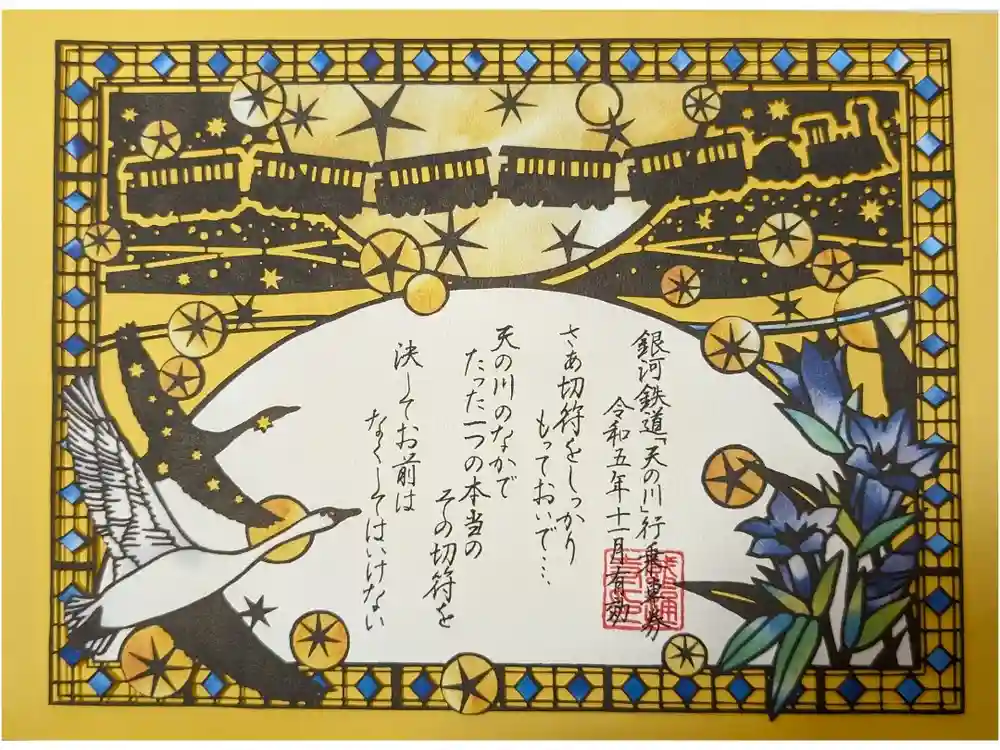 銀河鉄道「天の川」行乗車券
令和五年十一月有効
さあ切符をしっかり
もっておいで…
天の川のなかで
たった一つの本当の
その切符を
決してお前は
なくしてはいけない